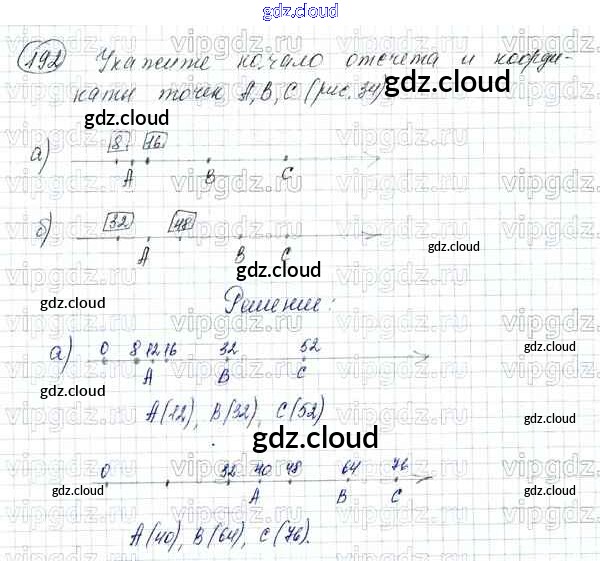 gdz.cloud
192 Укажите начало отсчета и коорди-
наты точек A, B, C (рис. 34)
gdz.cloud
gdz.cloud
а) 8 16
A B C
gdz.cloud
б) 32 48
A B C
gdz.cloud
gdz.cloud
gdz.cloud
Решение:
а) 0 8 12 16 32 52
A B C
gdz.cloud
gdz.cloud
A(12), B(32), C(52)
gdz.cloud
gdz.cloud
0 32 40 48 64 76
A B C
gdz.cloud
gdz.cloud
A(40), B(64), C(76).
gdz.cloud